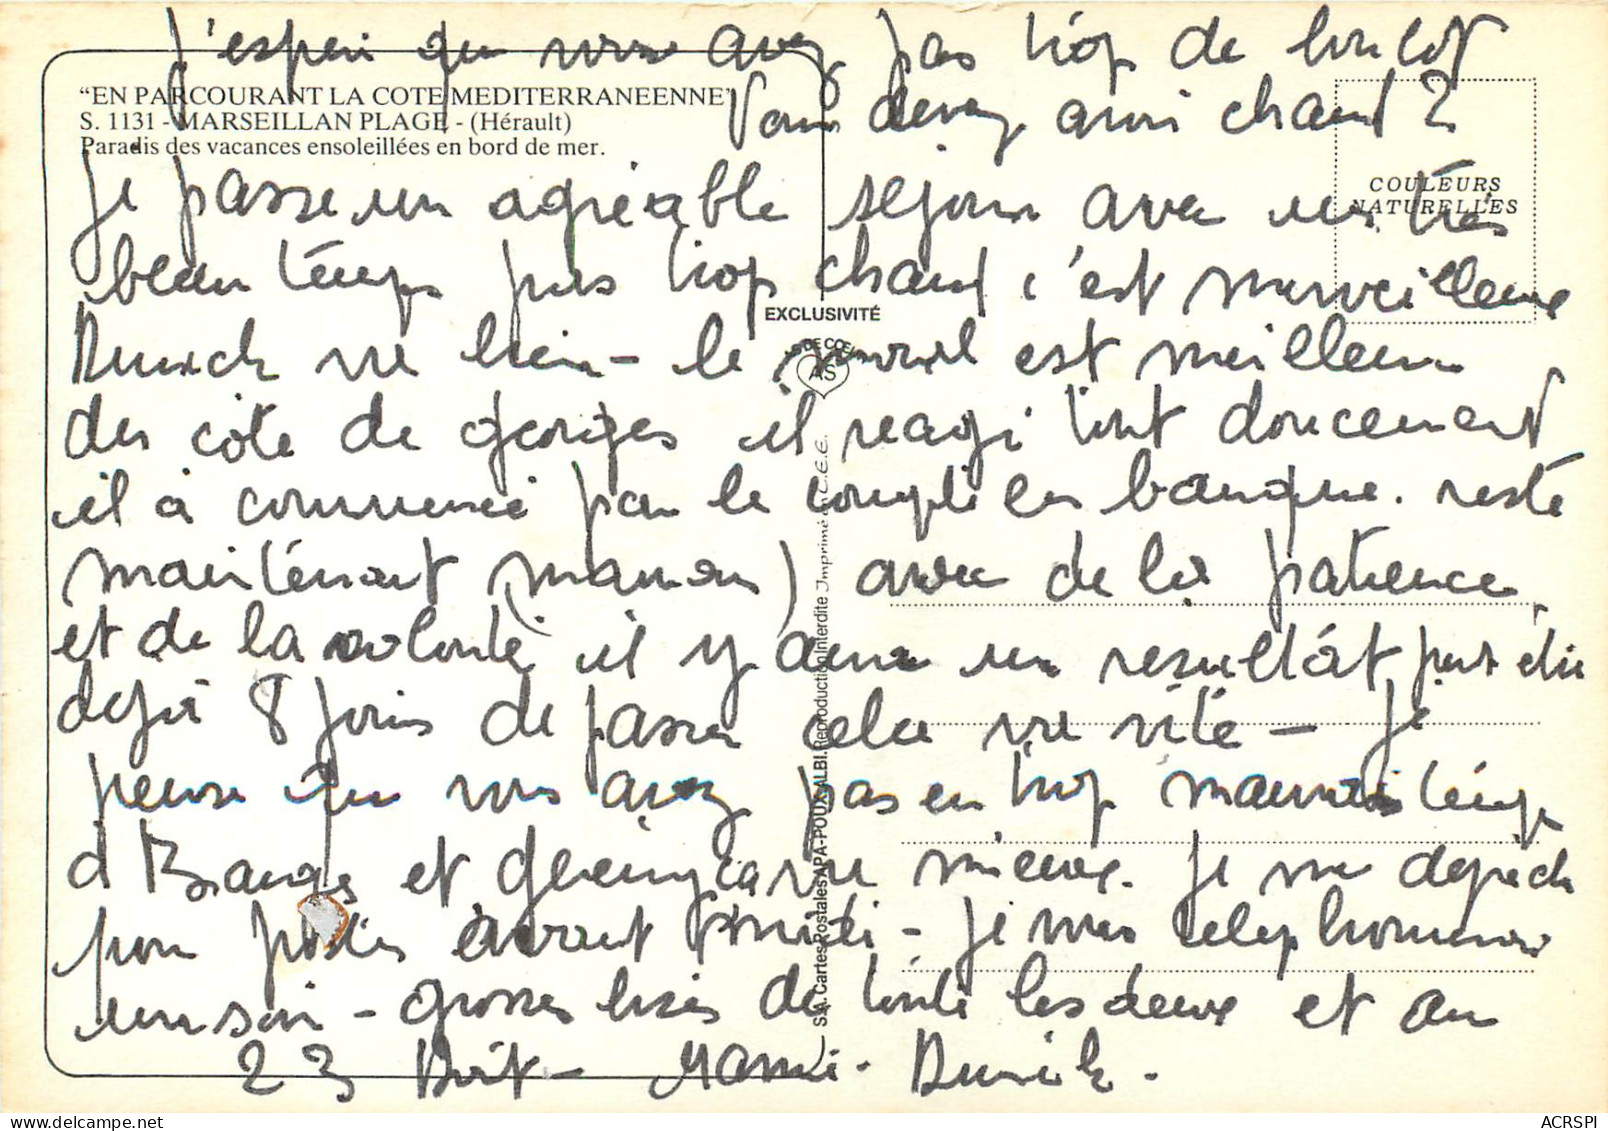 J'espère que vous avez pas trop de boulot
Vous devez avoir chaud ?
"EN PARCOURANT LA COTE MEDITERRANEENNE"
S. 1131 - MARSEILLAN PLAGE - (Hérault)
Paradis des vacances ensoleillées en bord de mer.
COULEURS
NATURELLES
Je passe un agréable séjour avec un très
beau temps pas trop chaud c'est merveilleux
va bien - le moral est meilleur
du côté de georges il réagi tout doucement
il à commencé par le compte en banque. reste
maintenant maman) avec de la patience
et de la volonté il y aura un resultât
dejà 8 jours de passer cela va vite - Je
pense que vous avez pas eu trop mauvais temps
et va mieux. Je me dépêche
pour poster avant midi - Je vous telephonerai
un soir - grosses bises de toute les deux et au
23 Août - Mamie.
EXCLUSIVITÉ
AS DE CŒUR
AS
S.A. Cartes Postales APA-POUX ALBI. Reproduction Interdite Imprimé en C.E.E.
ACRSPI